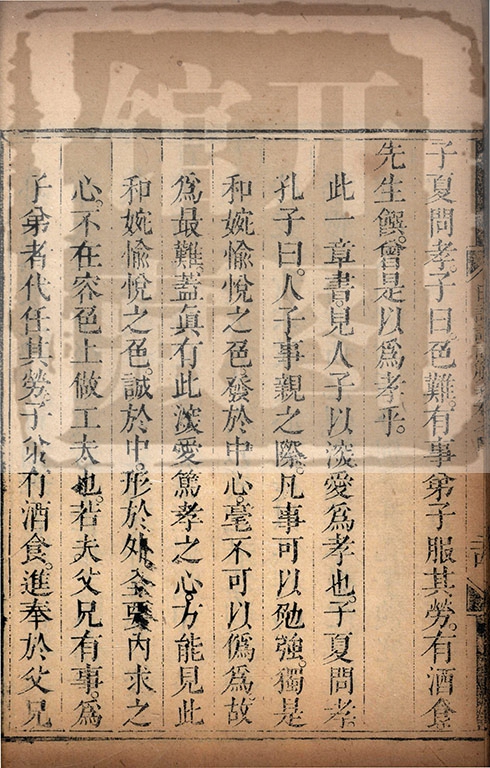 子夏問孝。子曰。色難。有事弟子服其勞。有酒食
先生饌。曾是以爲孝乎。
此一章書。見人子以深愛爲孝也。子夏問孝
孔子曰。人子事親之際。凡事可以勉強。獨是
和婉愉悅之色發於中心。毫不可以僞爲。故
爲最難。蓋眞有此深愛篤孝之心。方能見此
和婉愉悅之色。誠於中。形於外。全要內求之
心。不在容色上做工夫也。若夫父兄有事。爲
子弟者代任其勞。子弟有酒食。進奉於父兄